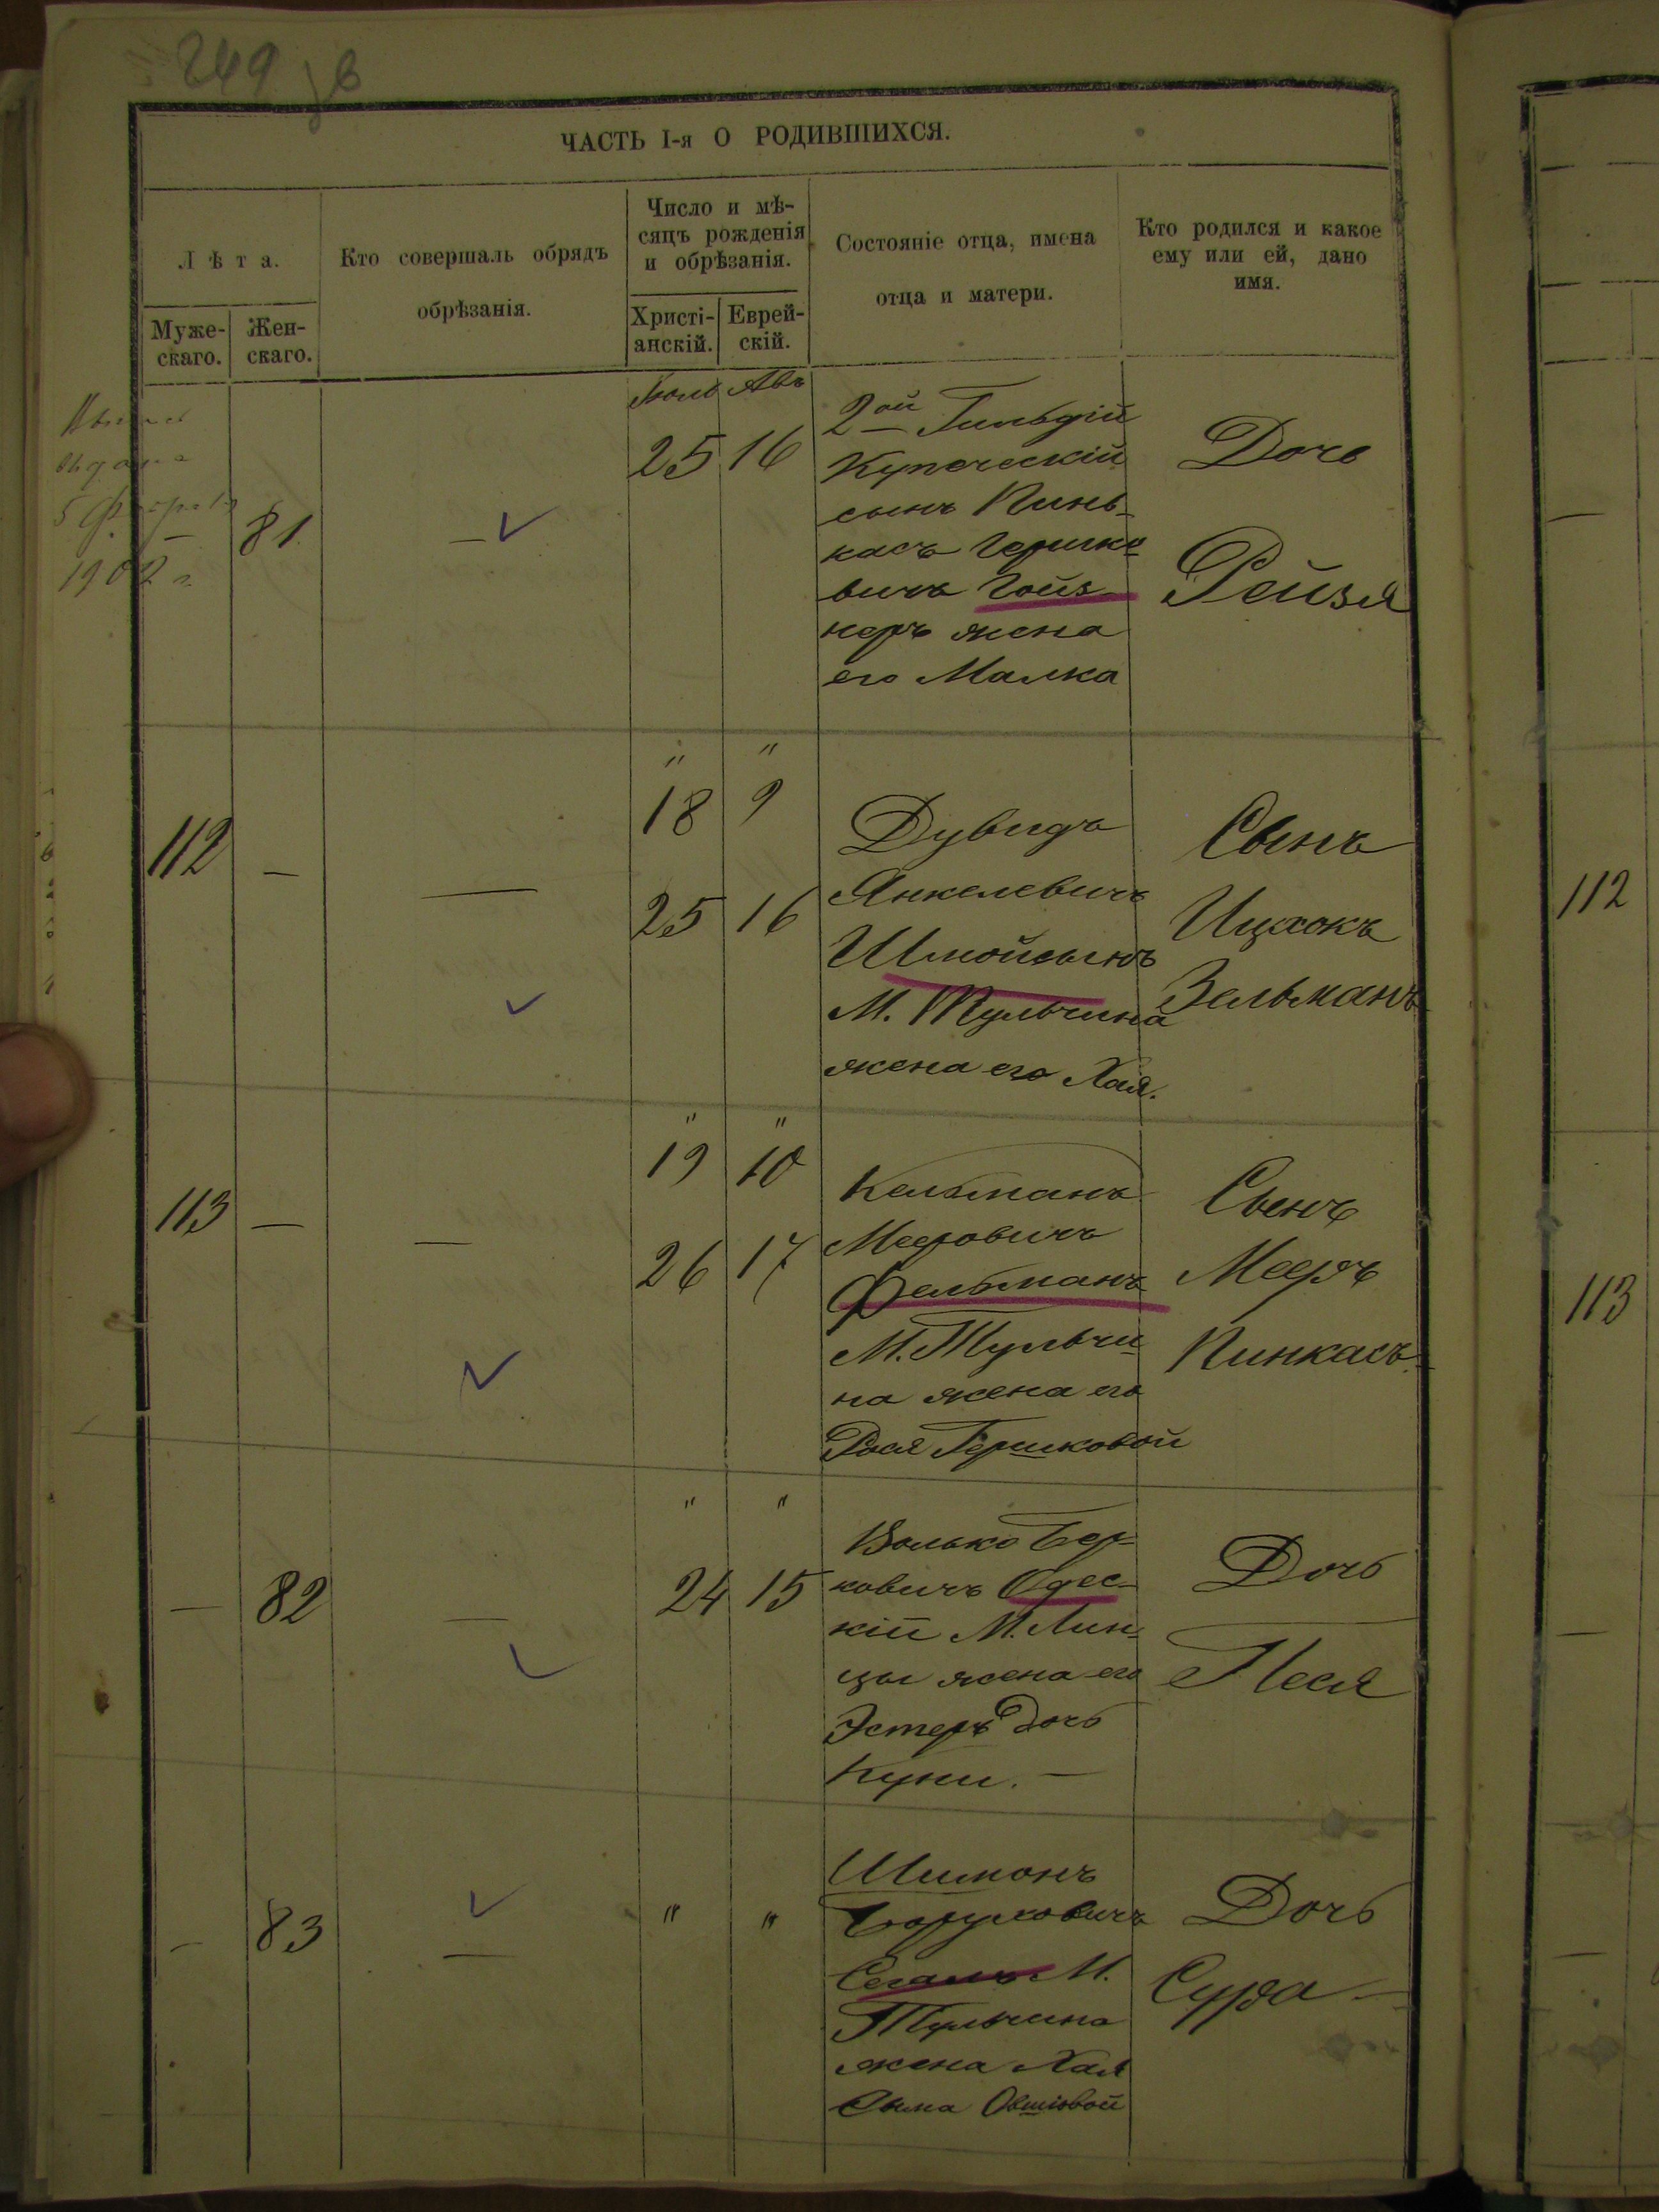 249 
ЧАСТЬ I-я О РОДИВШИХСЯ.
Лѣта.
Муже-
скаго.
Жен-
скаго.
Кто совершаль обрядъ
обрѣзанія.
Число и мѣ-
сяцъ рожденія
и обрѣзанія.
Христі-
анскій.
Еврей-
скій.
Состояніе отца, имена
отца и матери.
Кто родился и какое
ему или ей, дано
имя.
Июль Авъ
1902 г
81
25 16
2ой Гильдій
Купеческій
сынъ Пинь-
касъ Гершко
вичъ Гойз-
неръ жена
его Малка
Дочь
Рейзя
" "
112 —
18 9
25 16
Дувидъ
Янкелевичъ
Шмойсынъ
М. Тульчина
жена его Хая.
Сынъ
Ицхокъ
Зельманъ
112
" "
113 —
19 10
26 17
Кельманъ
Мееровичъ
Фельманъ
М. Тульчи
на жена его
Рося Гершковой
Сынъ
Мееръ
Пинкасъ
113
" "
— 82
24 15
Волько Бер-
ковичъ Одес-
кій М. Лин-
цы жена его
Эстеръ дочь
Куни. —
Дочь
Песя
— 83
" "
Шимонъ
Боруховичъ
Сегалъ М.
Тульчина
жена Хая
Сима Овшіовой
Дочь
Сура —